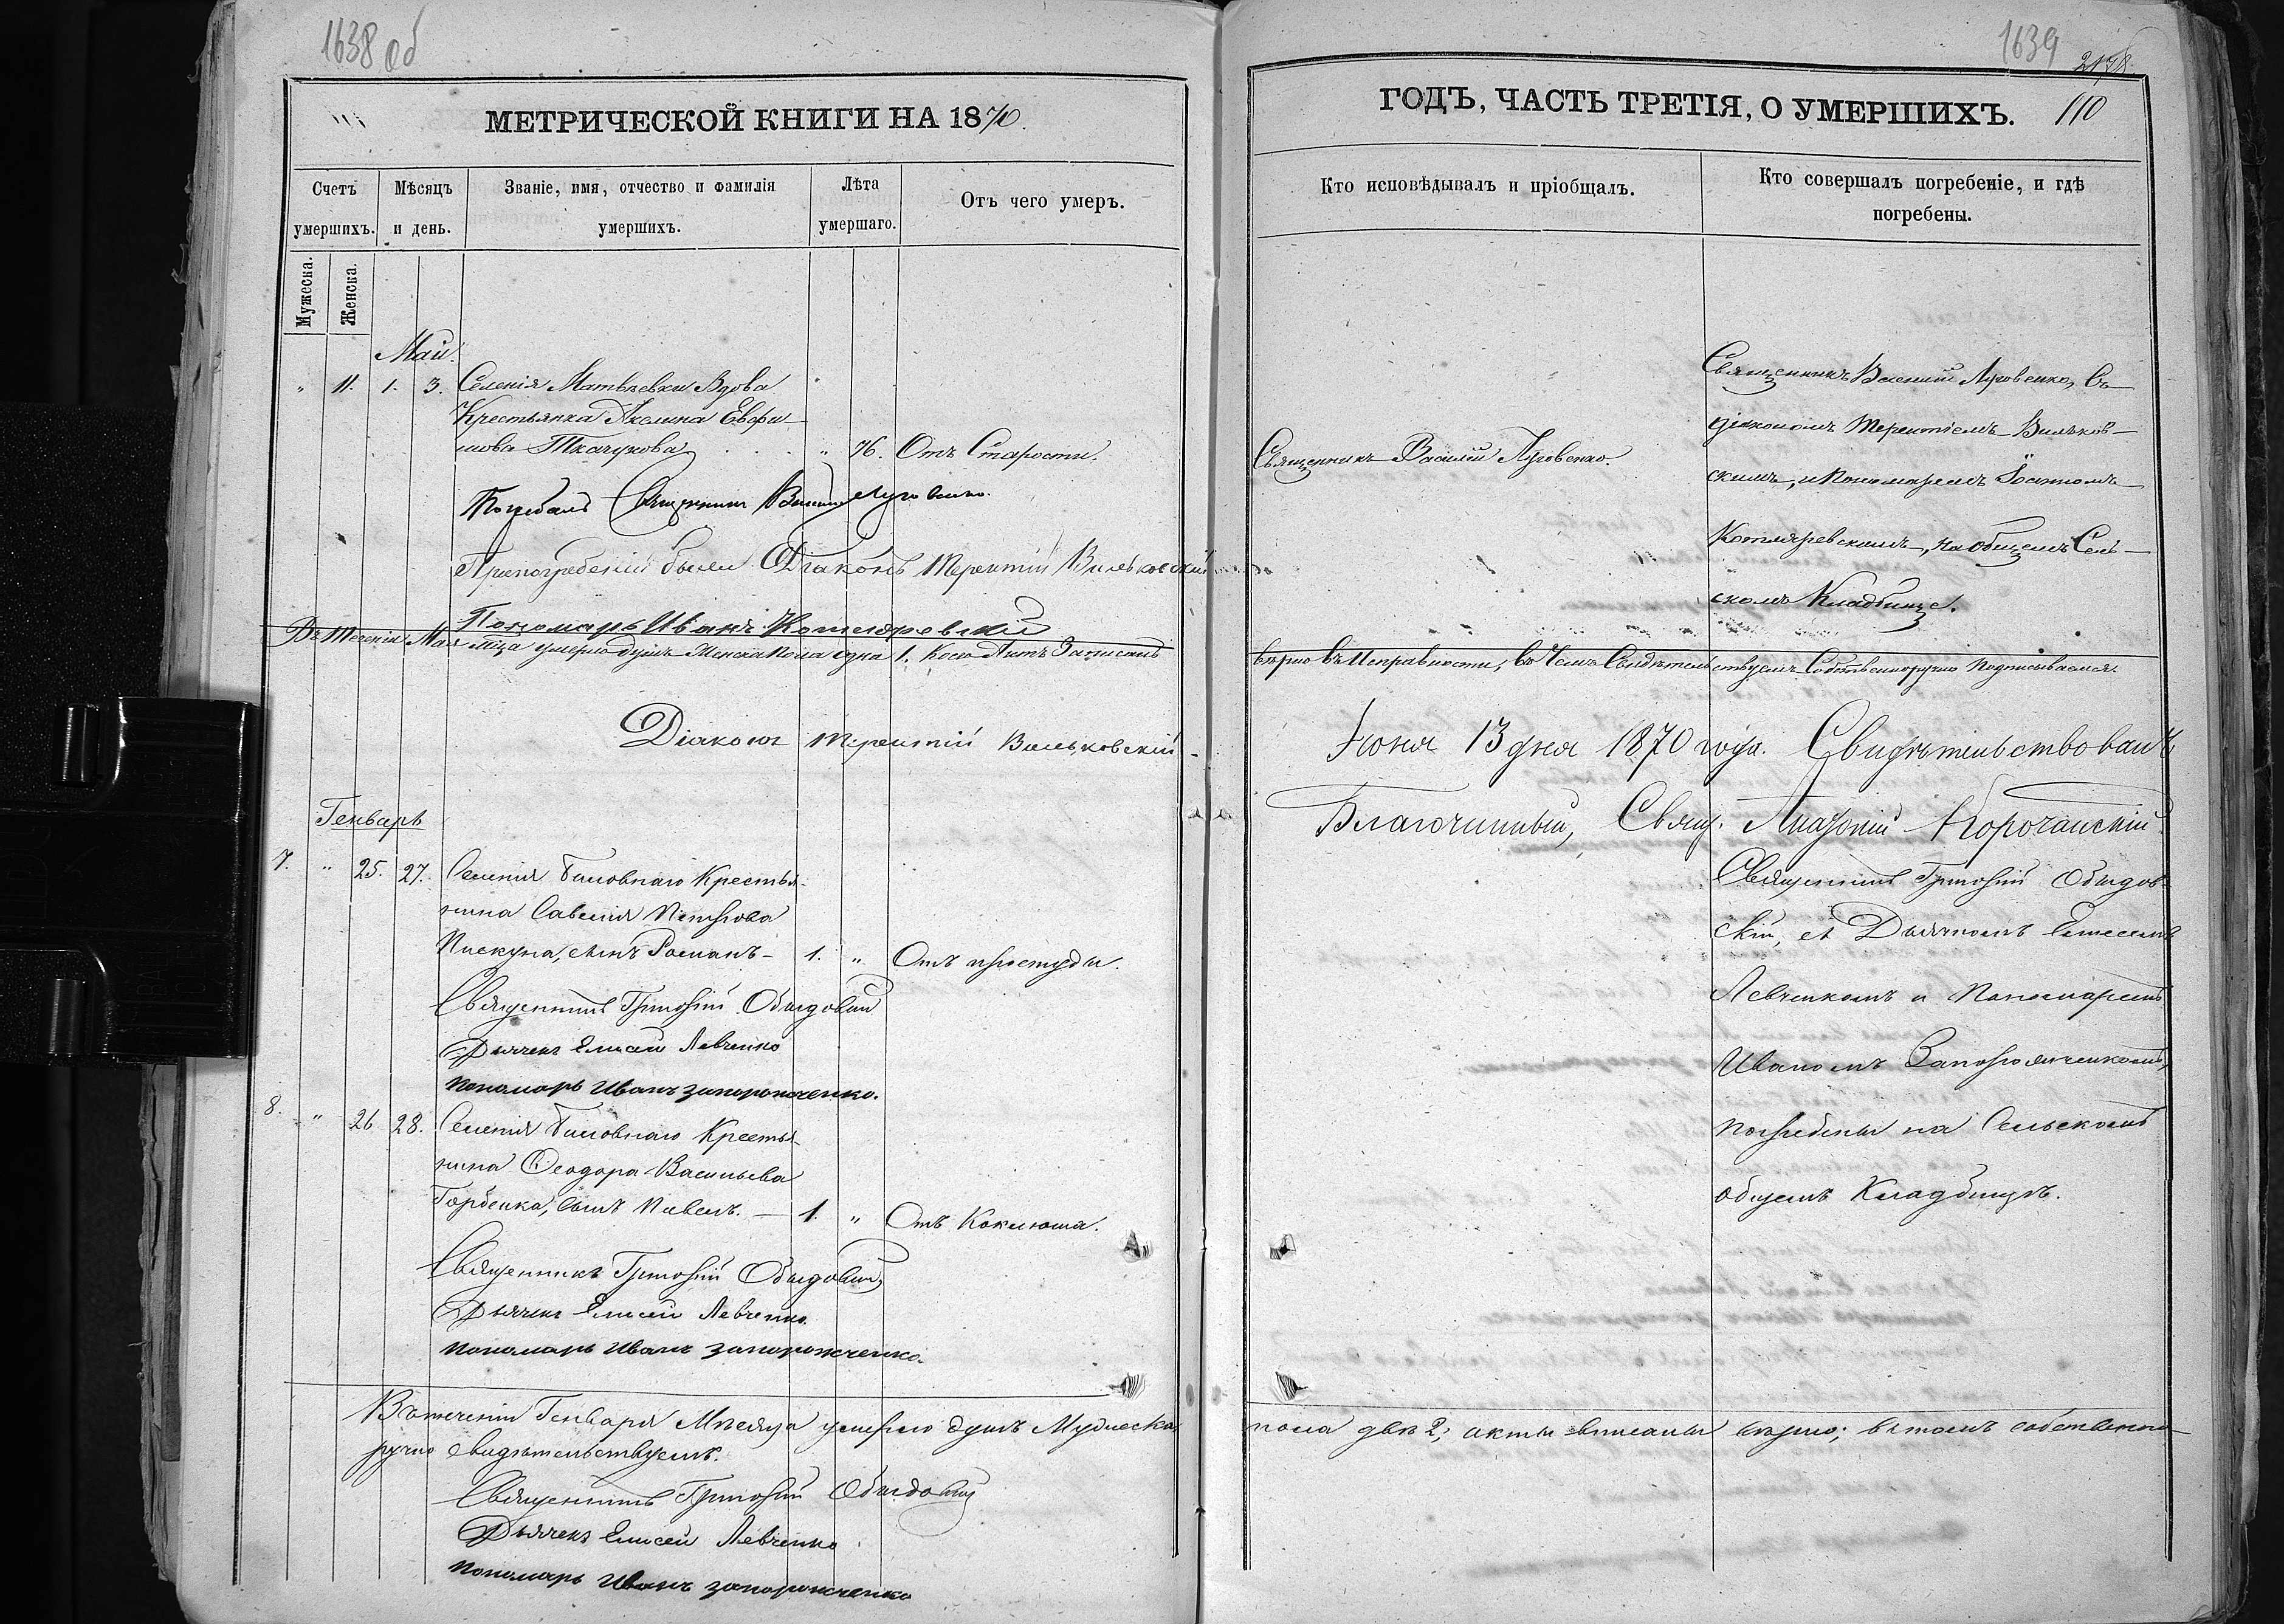 1638 об
МЕТРИЧЕСКОЙ КНИГИ НА 1870.
Счетъ умершихъ.
Мѣсяцъ и день.
Званіе, имя, отчество и фамилія умершихъ.
Лѣта умершаго.
Отъ чего умеръ.
Мужеска.
Женска.
Май.
" 11. 1. 3. Селенія Матвѣевки Вдова
Крестьянка Акелина Евфи-
мова Ткачукова . . . " 76. Отъ Старости.
Погребалъ Священникъ Василій Луговенко.
Припогребеніи были Діаконъ Терентій Вильковскій
Пономарь Иванъ Котляревскій
Въ теченіи Мая мѣца умерло душъ Женска пола одна 1. Коего Актъ Записанъ
Діаконъ Терентій Вильковскій
Генварь
7. " 25. 27. Селенія Биловнаго Крестья-
нина Савелія Петрова
Пискуна, сынъ Романъ - 1. " Отъ простуды.
Священникъ Григорій Обидовскій
Дьячекъ Елисей Левченко
Пономарь Иванъ Запорожченко.
8. " 26 28. Селенія Биловнаго Крестья-
нина Ѳеодора Васильева
Горбенка, сынъ Павелъ. - 1. " Отъ Коклюша.
Священникъ Григорій Обидовскій
Дьячекъ Елисей Левченко.
Пономарь Иванъ Запорожченко.
Въ теченіи Генваря Мѣсяца умерло душъ Мужеска
ручно свидѣтельствуемъ.
Священникъ Григорій Обидовскій
Дьячекъ Елисей Левченко
Пономарь Иванъ Запорожченко
1639
110
ГОДЪ, ЧАСТЬ ТРЕТІЯ, О УМЕРШИХЪ.
Кто исповѣдывалъ и пріобщалъ.
Кто совершалъ погребеніе, и гдѣ погребены.
Священникъ Василій Луговенко.
Священникъ Василій Луговенко, съ
діакономъ Терентіемъ Вильков-
скимъ, и Пономаремъ Іоанномъ
Котляревскимъ, на общемъ Сель-
скомъ Кладбище.
вѣрно въ Исправности, въ Чемъ Свидѣтельствуемъ Собственноручно подписываемся.
Іюня 13 дня 1870 года. Свидѣтельствовалъ
Благочинный, Свящ. Корочанскій
Священникъ Григорій Обидов-
скій, съ Дьячкомъ Елисеемъ
Левченкомъ и Пономаремъ
Иваномъ Запорожченкомъ,
погребены на Сельскомъ
общемъ Кладбищѣ.
пола двѣ 2; акты вписаны вѣрно; въ томъ собственно-